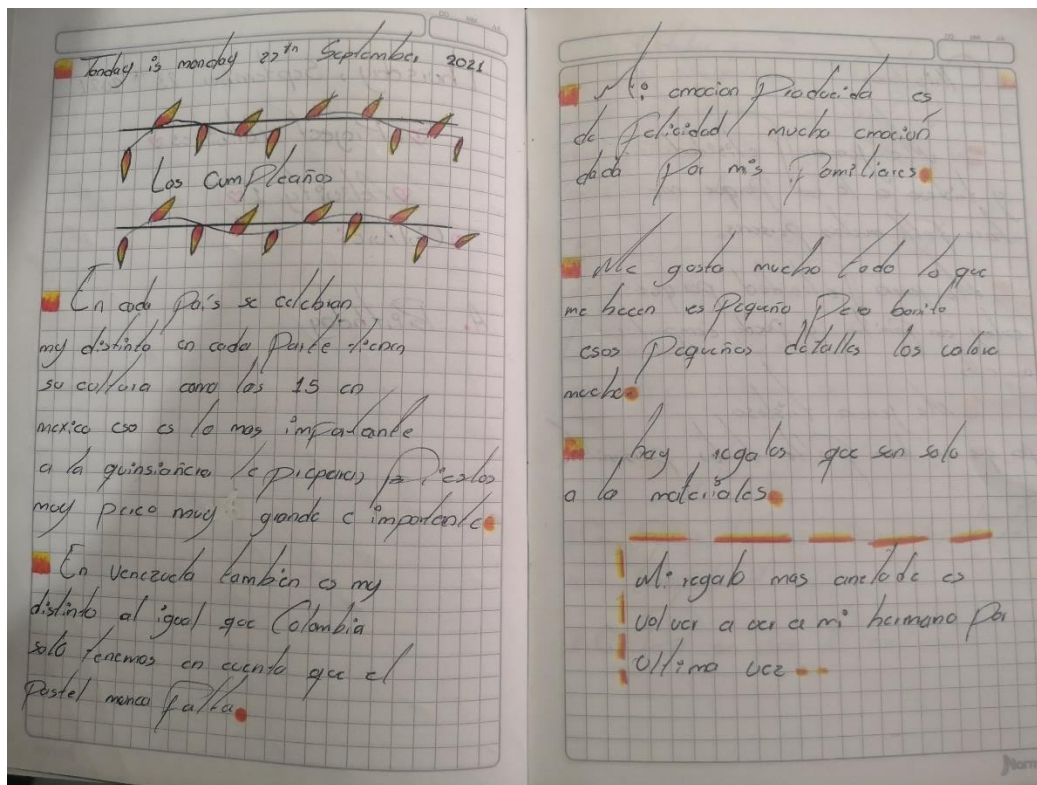 Tonday is monday 27th September 2021
Los Cumpleaños
En cada País se celebran
my distinto en cada Parte tienen
su cultura como los 15 en
mexico eso es lo mas importante
a la quinsiañera le preparan
muy muy grande e importante.
En Venezuela tambien es my
distinto al igual que Colombia
solo tenemos en cuenta que el
Pastel nunca falta.
Mi emocion Producida es
de felicidad mucho emoción
dada Por mis Familiares.
Me gusta mucho todo lo que
me hacen es Pequeño Pero bonito
esos Pequeños detalles los valoro
mucho.
hay regalos que son solo
a lo materiales.
Mi regalo mas anelado es
volver a ver a mi hermano Por
Ultima vez..
Norm